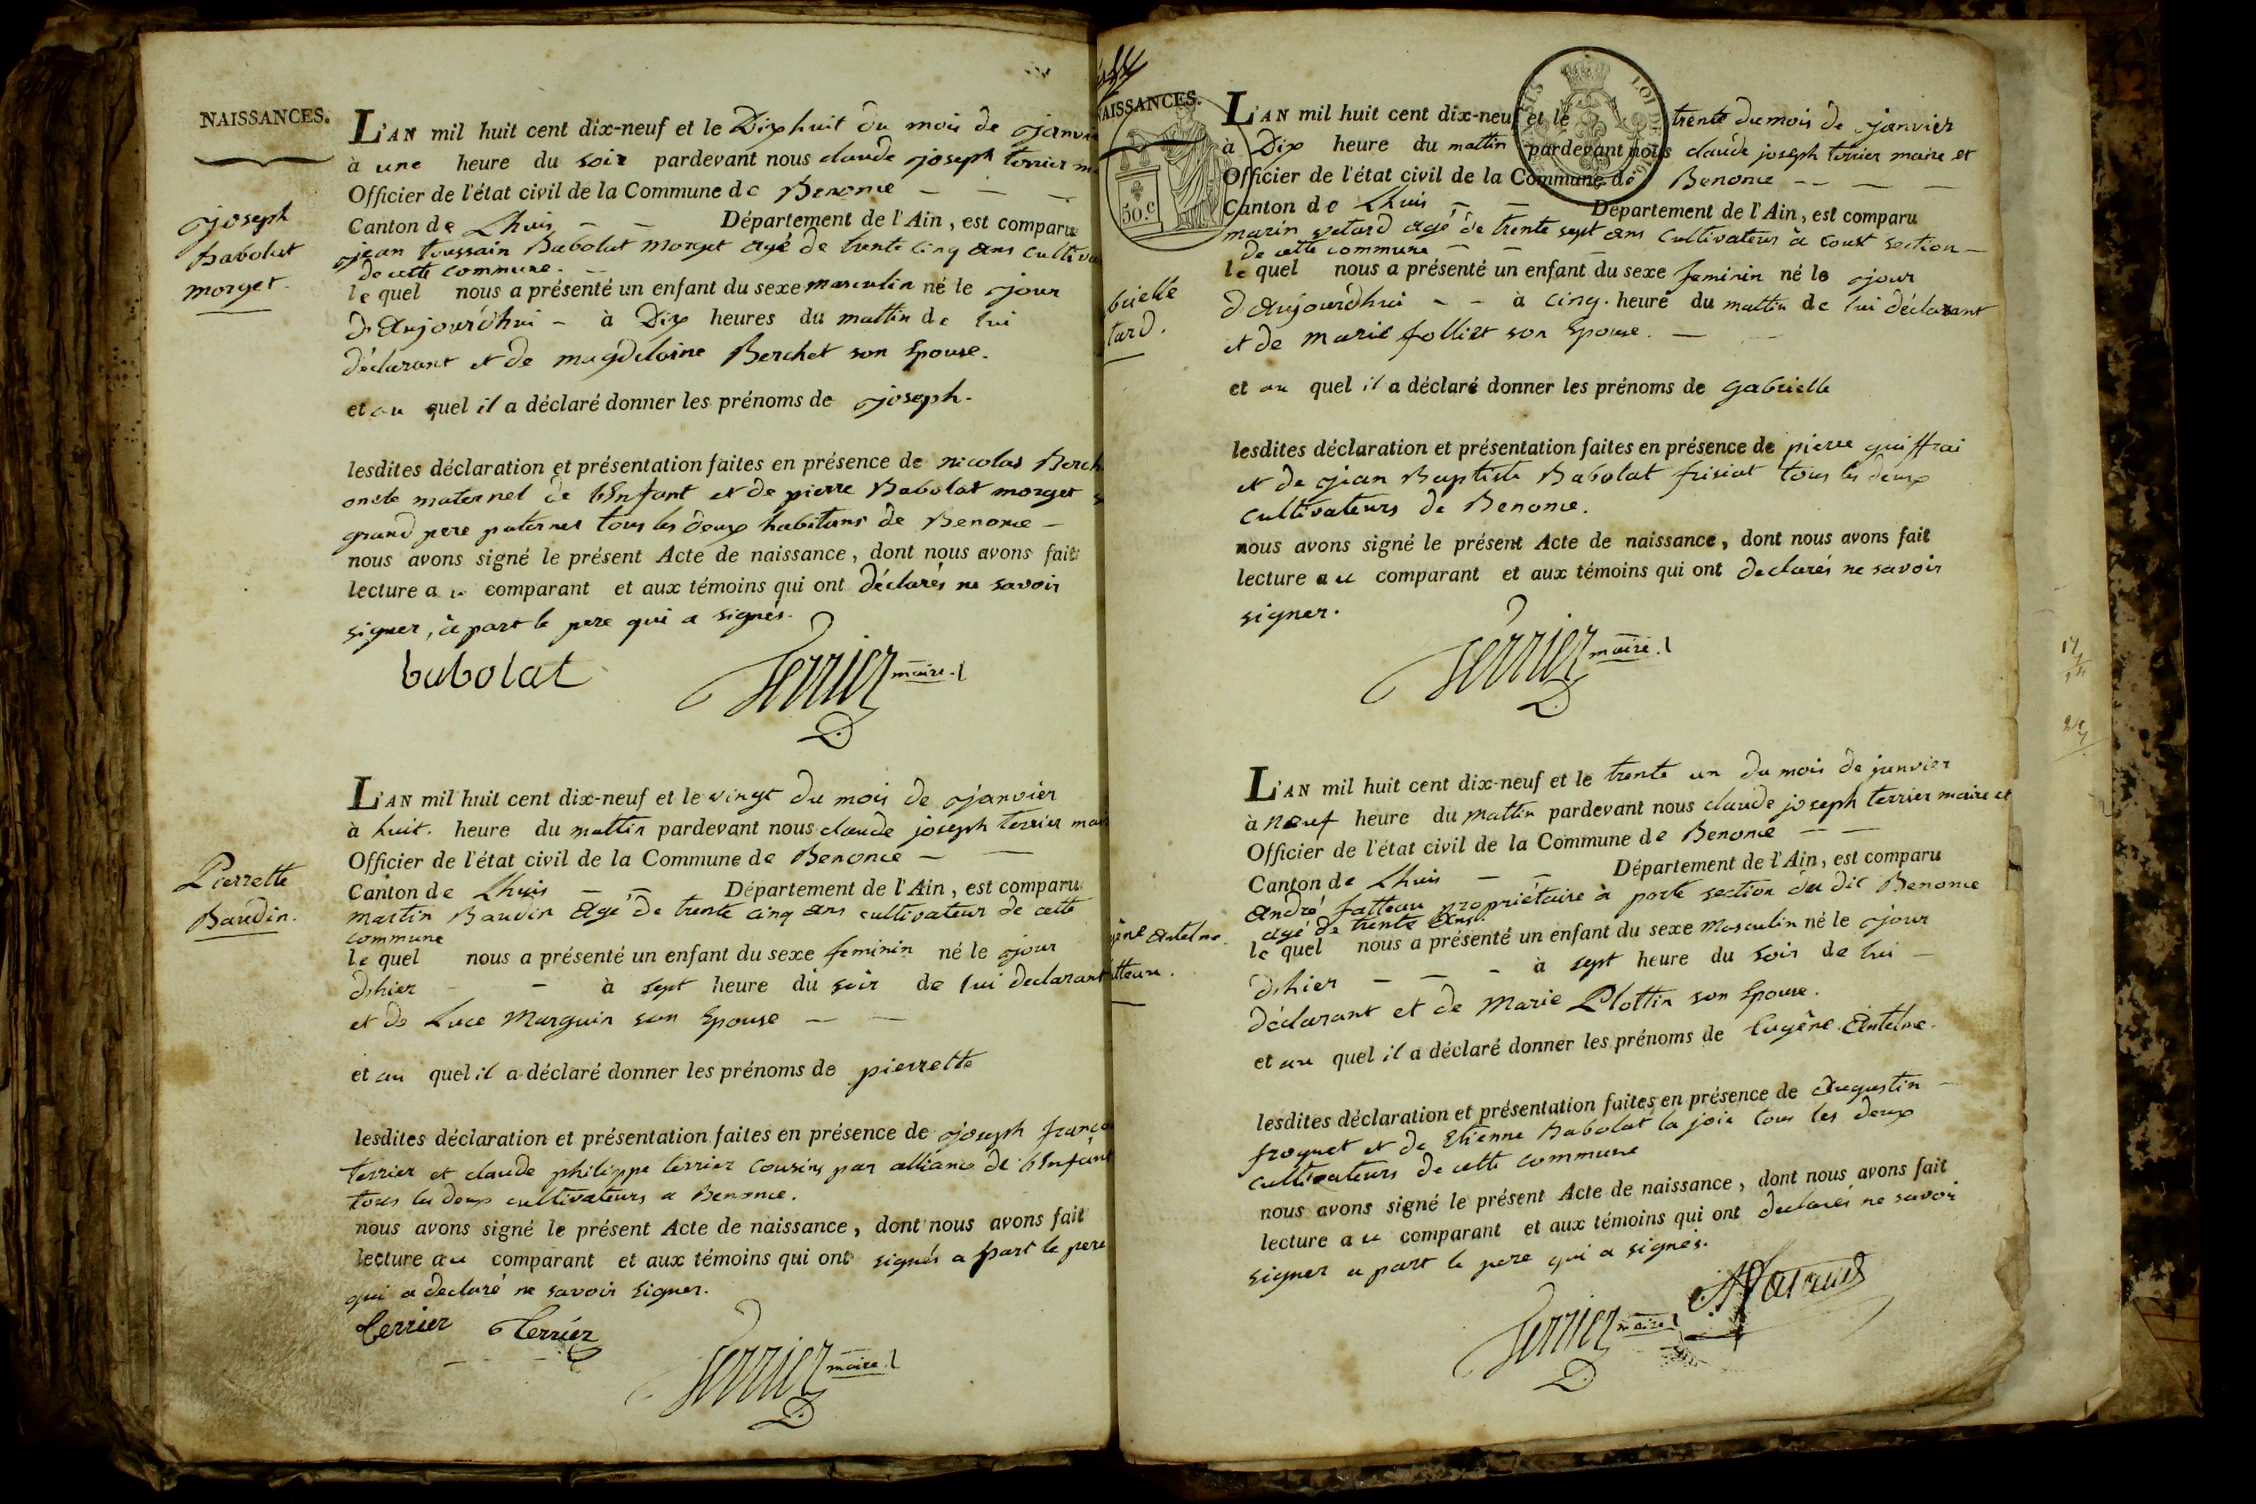 NAISSANCES.
joseph
babolat
morget.
L'AN mil huit cent dix-neuf et le Dix huit du mois de janvie
à une heure du soir pardevant nous claude joseph terrier m
Officier de l'état civil de la Commune de Benonce
Canton de Lhuis Département de l'Ain, est comparu
jean toussain Babolat morget agé de trente cinq ans cultiva
de cette commune.
le quel nous a présenté un enfant du sexe masculin né le jour
d'aujourd'hui à Dix heures du mattin de lui
déclarant et de magdeloine Berchet son Epouse.
et au quel il a déclaré donner les prénoms de joseph.
lesdites déclaration et présentation faites en présence de nicolas Berch
oncle maternel de l'Enfant et de pierre Babolat morget
grand pere paternel tous les deux habitans de Benonce
nous avons signé le présent Acte de naissance, dont nous avons fait
lecture au comparant et aux témoins qui ont déclarés ne savoir
signer, à part le pere qui a signés.
babolat Terrier maire.
Pierrette
Baudin.
L'AN mil huit cent dix-neuf et le vingt du mois de janvier
à huit. heure du mattin pardevant nous claude joseph terrier mai
Officier de l'état civil de la Commune de Benonce
Canton de Lhuis Département de l'Ain, est comparu
martin Baudin agé de trente cinq ans cultivateur de cette
commune
le quel nous a présenté un enfant du sexe feminin né le jour
d'hier à sept heure du soir de lui declarant
et de Luce Marguin son Epouse
et au quel il a déclaré donner les prénoms de pierrette
lesdites déclaration et présentation faites en présence de joseph franço
terrier et claude philippe terrier cousins par alliance de l'Enfant
tous les deux cultivateurs a Benonce.
nous avons signé le présent Acte de naissance, dont nous avons fait
lecture au comparant et aux témoins qui ont signés a part le pere
qui a declaré ne savoir signer.
terrier Terrier
Terrier maire.
NAISSANCES.
50.c
LOI DE
brielle
tard.
L'AN mil huit cent dix-neuf et le trente du mois de janvier
à Dix heure du mattin pardevant nous claude joseph terrier maire et
Officier de l'état civil de la Commune de Benonce
Canton de Lhuis Département de l'Ain, est comparu
marin petard agé de trente sept ans cultivateur à section
de cette commune
le quel nous a présenté un enfant du sexe feminin né le jour
d'aujourd'hui à cinq. heure du mattin de lui déclarant
et de marie folliet son Epouse.
et au quel il a déclaré donner les prénoms de gabrielle
lesdites déclaration et présentation faites en présence de pierre guiffrai
et de jean Baptiste Babolat frisiat tous les deux
cultivateurs de Benonce.
nous avons signé le présent Acte de naissance, dont nous avons fait
lecture au comparant et aux témoins qui ont declarés ne savoir
signer.
Terrier maire.
gène Antelme.
tteau.
L'AN mil huit cent dix-neuf et le trente un du mois de janvier
à neuf heure du mattin pardevant nous claude joseph terrier maire et
Officier de l'état civil de la Commune de Benonce
Canton de Lhuis Département de l'Ain, est comparu
André fatteau propriétaire à porte section du dit Benonce
agé de trente ans
le quel nous a présenté un enfant du sexe Masculin né le jour
d'hier à sept heure du soir de lui
déclarant et de Marie Plottin son Epouse.
et au quel il a déclaré donner les prénoms de Eugène. Antelme.
lesdites déclaration et présentation faites en présence de Augustin
froquet et de Etienne Babolat la joie tous les deux
cultivateurs de cette commune
nous avons signé le présent Acte de naissance, dont nous avons fait
lecture au comparant et aux témoins qui ont declarés ne savoir
signer a part le pere qui a signés.
Terrier maire